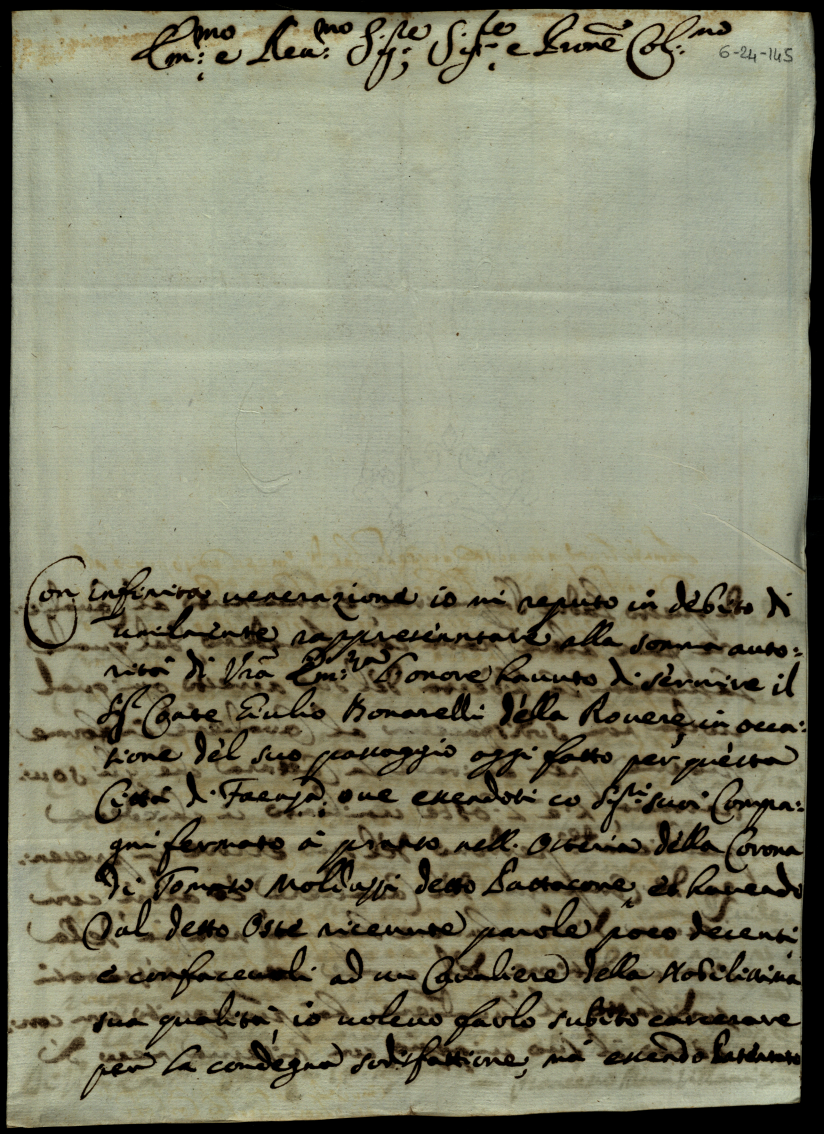 Em:mo e Reu:mo Sig:re Sig:re e Prone Col:mo
6-24-145
Con infinita ueneratione io mi reputo in debito di
umilmente rappresentare alla somma auto:
rità di Vrã Em:za l'honore hauuto di seruire il
Sig Conte Giulio Bonarelli della Rouere, in occa:
sione del suo passaggio oggi fatto per questa
Città di Faenza, oue essendosi co Sig:ri suoi Compa:
gni fermato à pranso nell'Osteria della Corona
di Tomaso detto et hauendo
dal detto Oste riceuute parole poco decenti,
e confaceuoli ad un Caualiere della Nobilissima
sua qualità, io uoleuo farlo subito carcerare
per la condegna sodisfattione, mà essendo Patentato